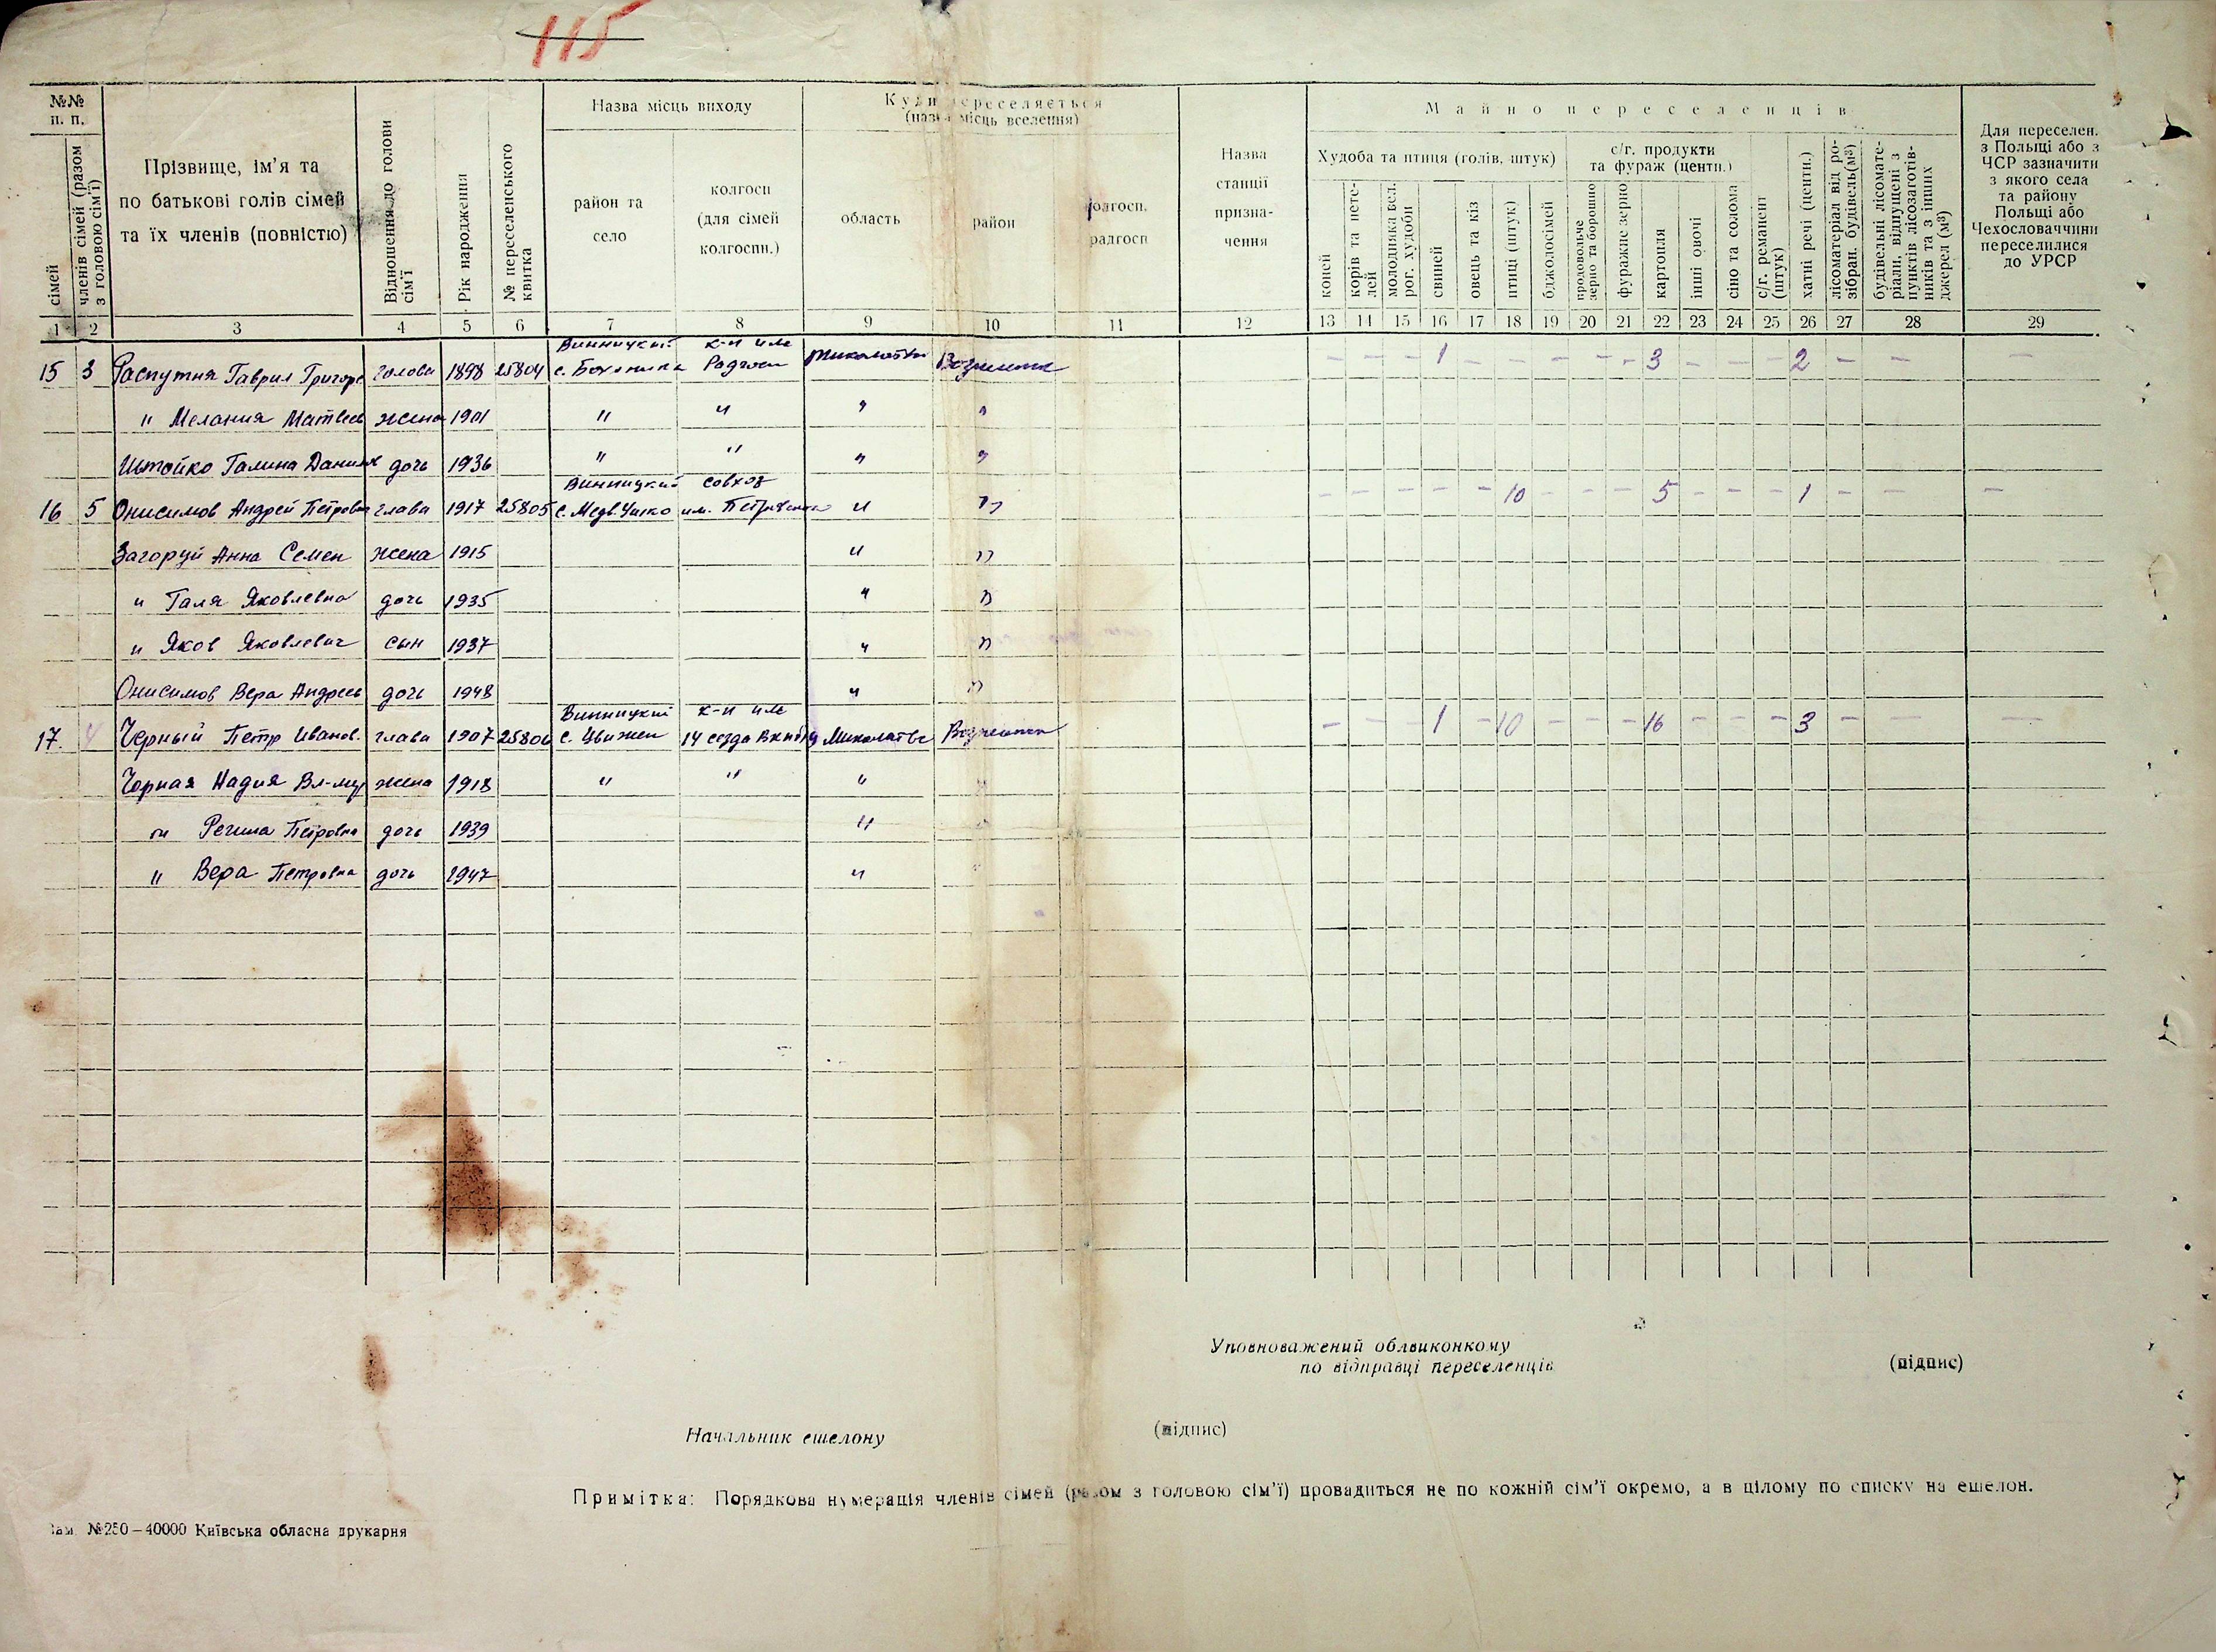 115
№№ п. п.
сімей
членів сімей (разом з головою сім'ї)
Прізвище, ім'я та
по батькові голів сімей
та їх членів (повністю)
Відношення до голови сім'ї
Рік народження
№ переселенського квитка
Назва місць виходу
район та
село
колгосп
(для сімей
колгоспн.)
Куди переселяється
(назва місць вселення)
область
район
колгосп.
радгосп
Назва
станції
призна-
чення
Майно переселенців
Худоба та птиця (голів, штук)
коней
корів та нете-
лей
молодняка вел.
рог. худоби
свиней
овець та кіз
птиці (штук)
бджолосімей
с/г. продукти
та фураж (центн.)
продовольче
зерно та борошно
фуражне зерно
картопля
інші овочі
сіно та солома
с/г. реманент
(штук)
хатні речі (центн.)
лісоматеріал від ро-
зібран. будівель (м³)
будівельні лісомате-
ріали, відпущені з
пунктів лісозаготів-
ників та з інших
джерел (м³)
Для переселен.
з Польщі або з
ЧСР зазначити
з якого села
та району
Польщі або
Чехословаччини
переселилися
до УРСР
1 2 3 4 5 6 7 8 9 10 11 12 13 14 15 16 17 18 19 20 21 22 23 24 25 26 27 28 29
Винницкий к-п им
15 3 Распутня Гаврил Григор голова 1898 25804 с. Бохоники - - - 1 - - - - - 3 - - - 2 - - -
" Мелания Матвеев жена 1901 " " " "
Галина Данил дочь 1936 " " " "
Винницкий совхоз
16 5 Онисимов Андрей Петрович глава 1917 25805 им. " " - - - - - 10 - - - 5 - - - 1 - - -
Загоруй Анна Семен жена 1915 " "
" Галя Яковлевна дочь 1935 " "
" Яков Яковлевич сын 1937 " "
Онисимов Вера Андреев дочь 1948 " "
Винницкий к-п им
17. 4 Черный Петр Иванов. глава 1907 25806 с. Цвижен 14 сезда - - - 1 - 10 - - - 16 - - - 3 - - -
Чорная Надия Вл-мир жена 1918 " " " "
" Регина Петровна дочь 1939 " "
" Вера Петровна дочь 1947 " "
Уповноважений облвиконкому
по відправці переселенців
(підпис)
Начальник ешелону
(підпис)
Примітка: Порядкова нумерація членів сімей (разом з головою сім'ї) провадиться не по кожній сім'ї окремо, а в цілому по списку на ешелон.
Зам. №250—40000 Київська обласна друкарня